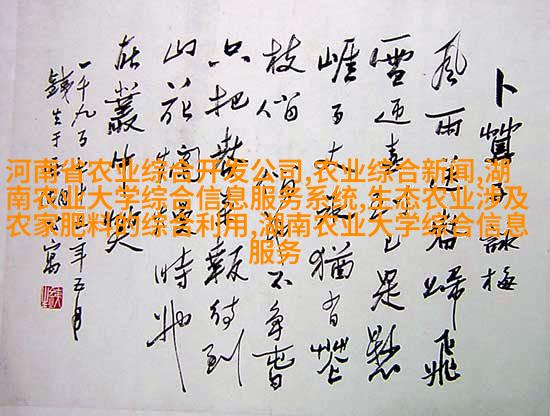 卜算子詠梅
風雨送春歸飛
雪迎春到已是懸
崖百丈冰猶有花
枝俏俏也不爭春
只把春來報待到
山花爛漫時她
在叢中笑
年五月
寫
河南省农业综合开发公司,农业综合新闻,湖
南农业大学综合信息服务系统,生态农业涉及
农家肥料的综合利用,湖南农业大学综合信息
服务